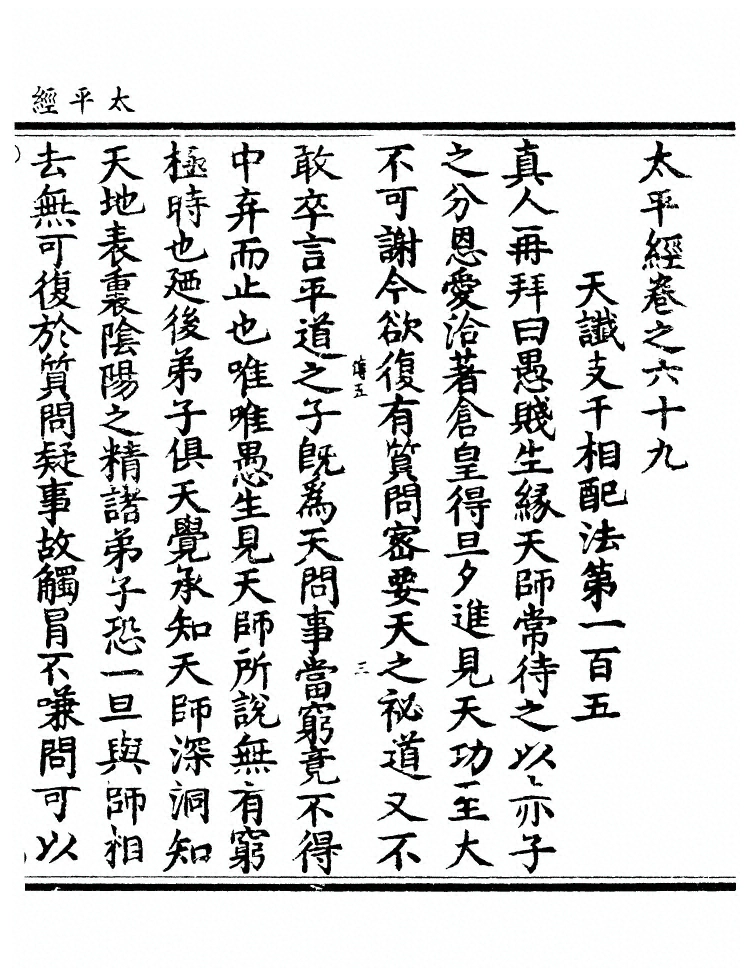 太平經
太平經卷之六十九
天讖支干相配法第一百五
真人再拜曰愚賤生緣天師常待之以亦子
之分恩愛洽著倉皇得旦夕進見天功至大
不可謝今欲復有質問密要天之祕道又不
傅五
三
敢卒言平道之子既為天問事當窮竟不得
中弃而止也唯唯愚生見天師所說無有窮
極時也廼後弟子俱天覺承知天師深洞知
天地表裏陰陽之精諸弟子恐一旦與師相
去無可復於質問疑事故觸冒不嗛問可以